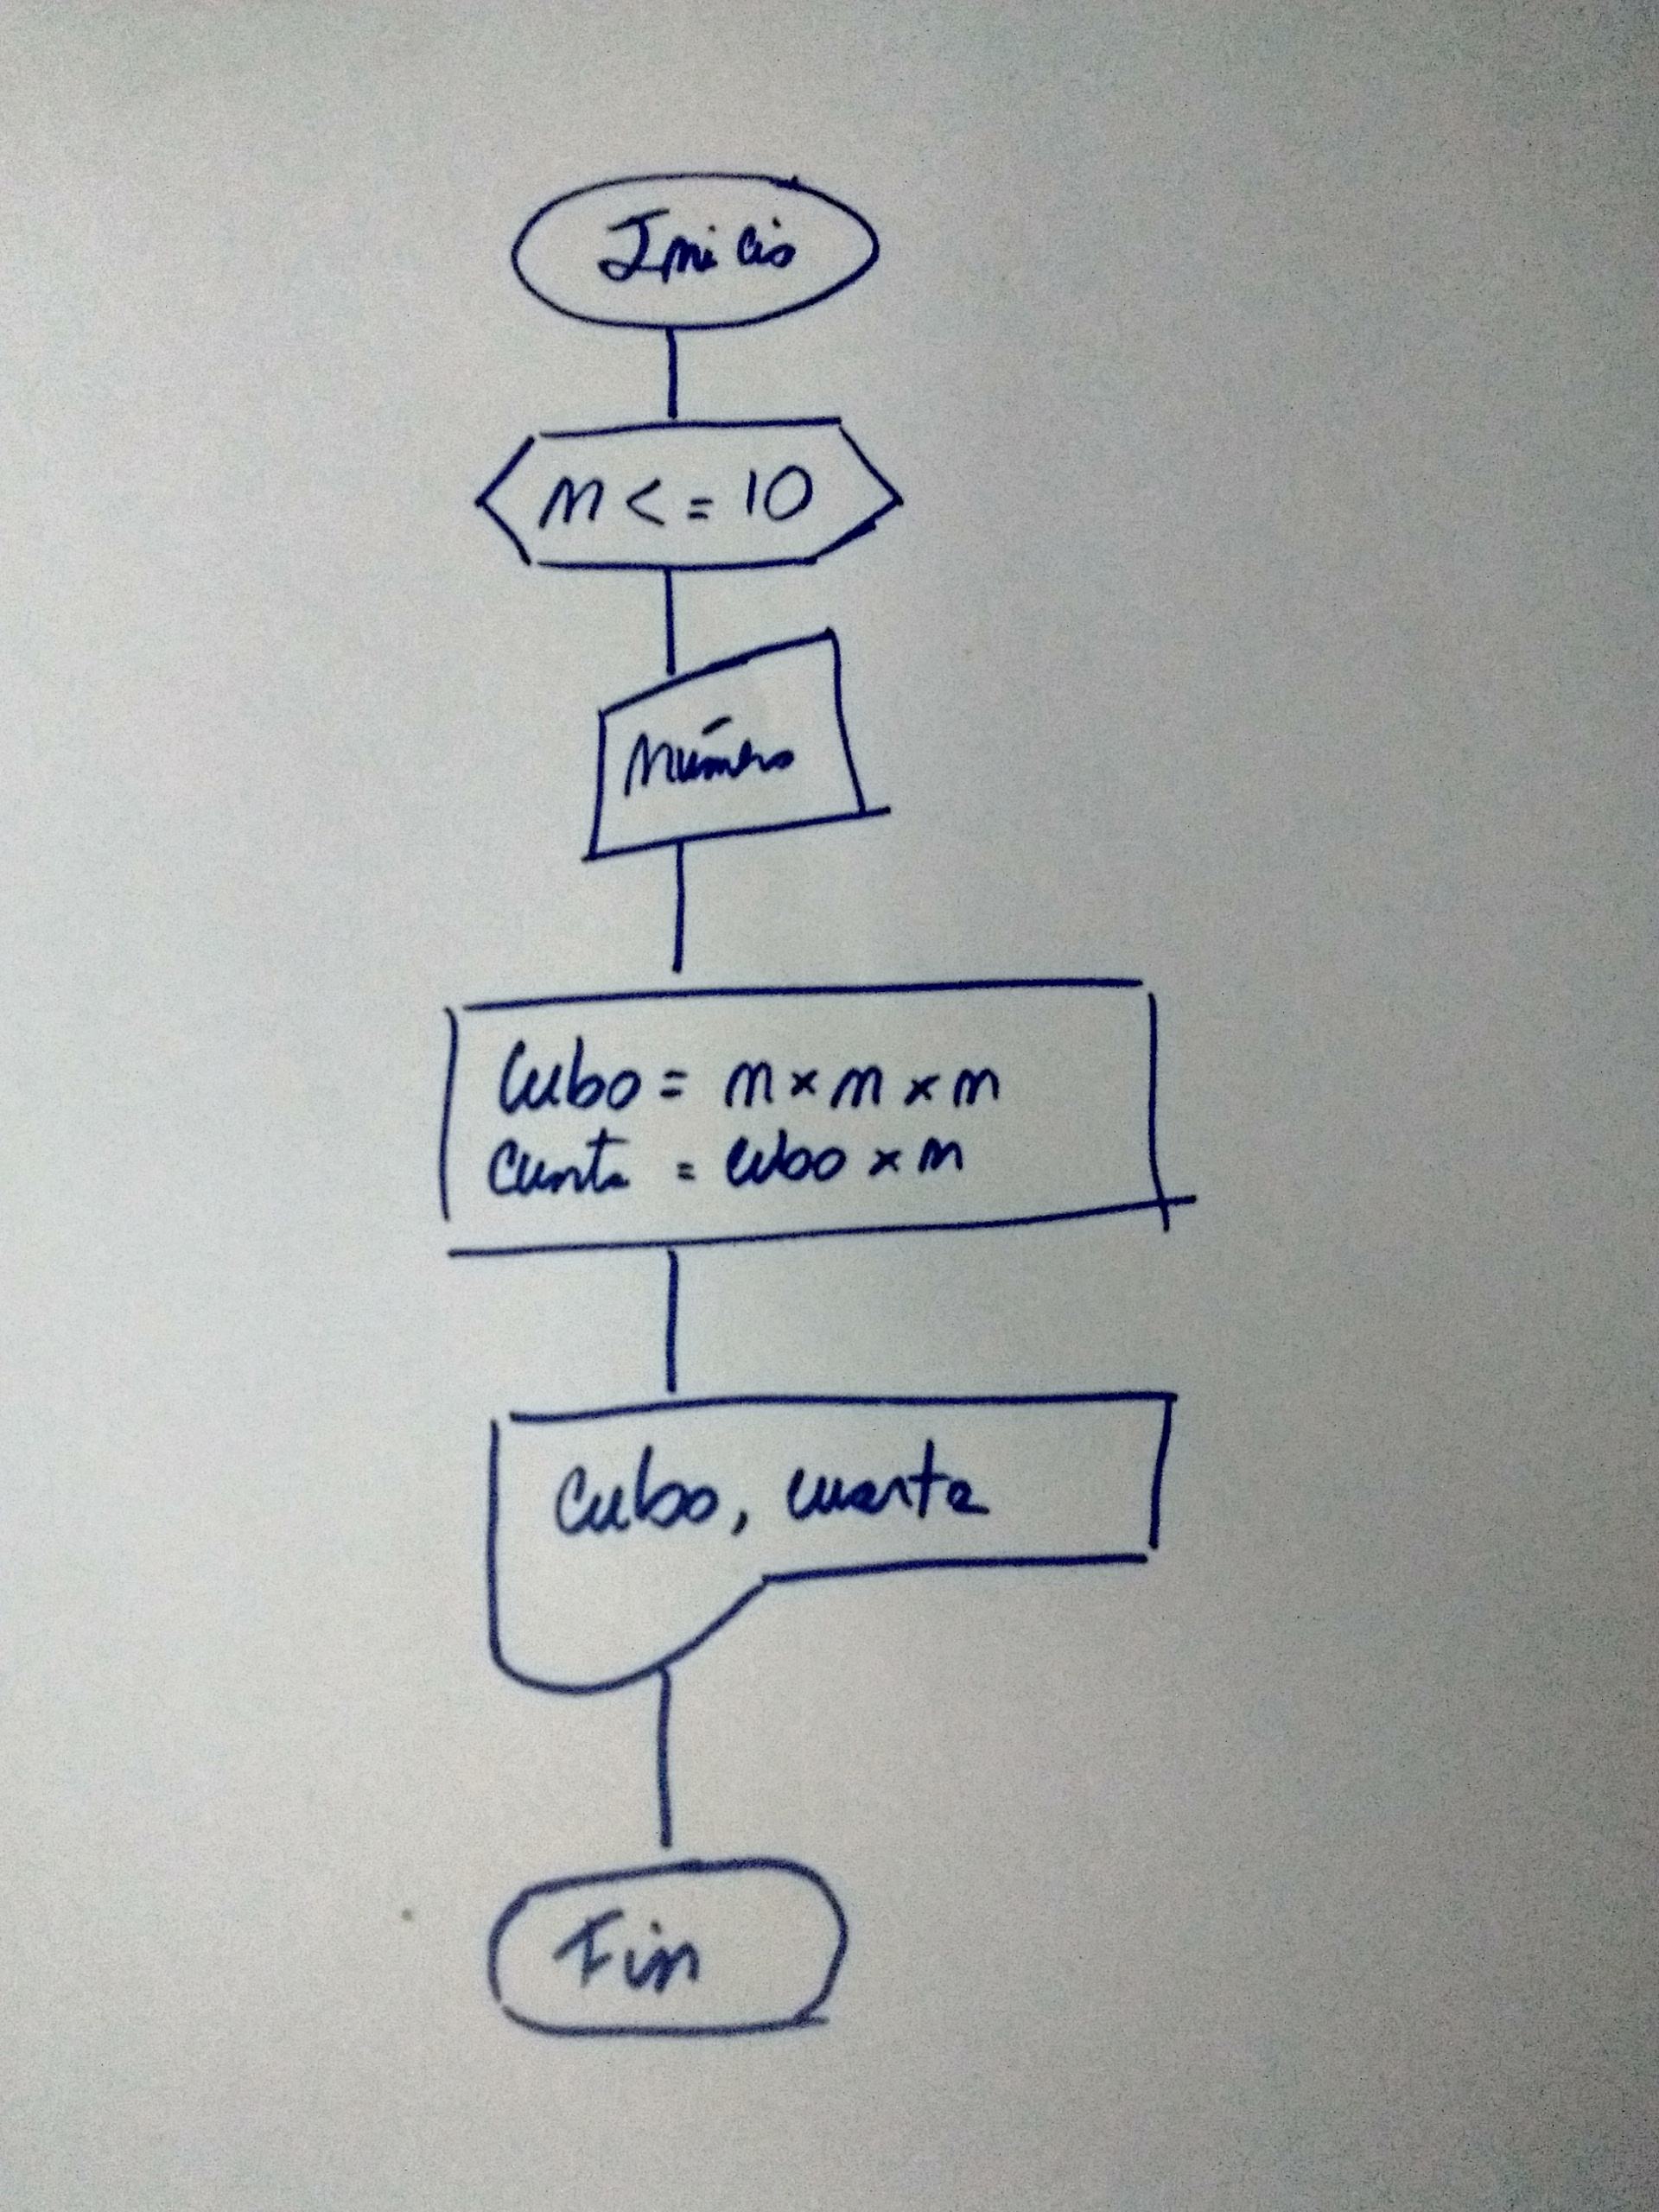 Inicio
n <= 10
Número
Cubo = n x n x n
Cuarta = cubo x n
Cubo, cuarta
Fin